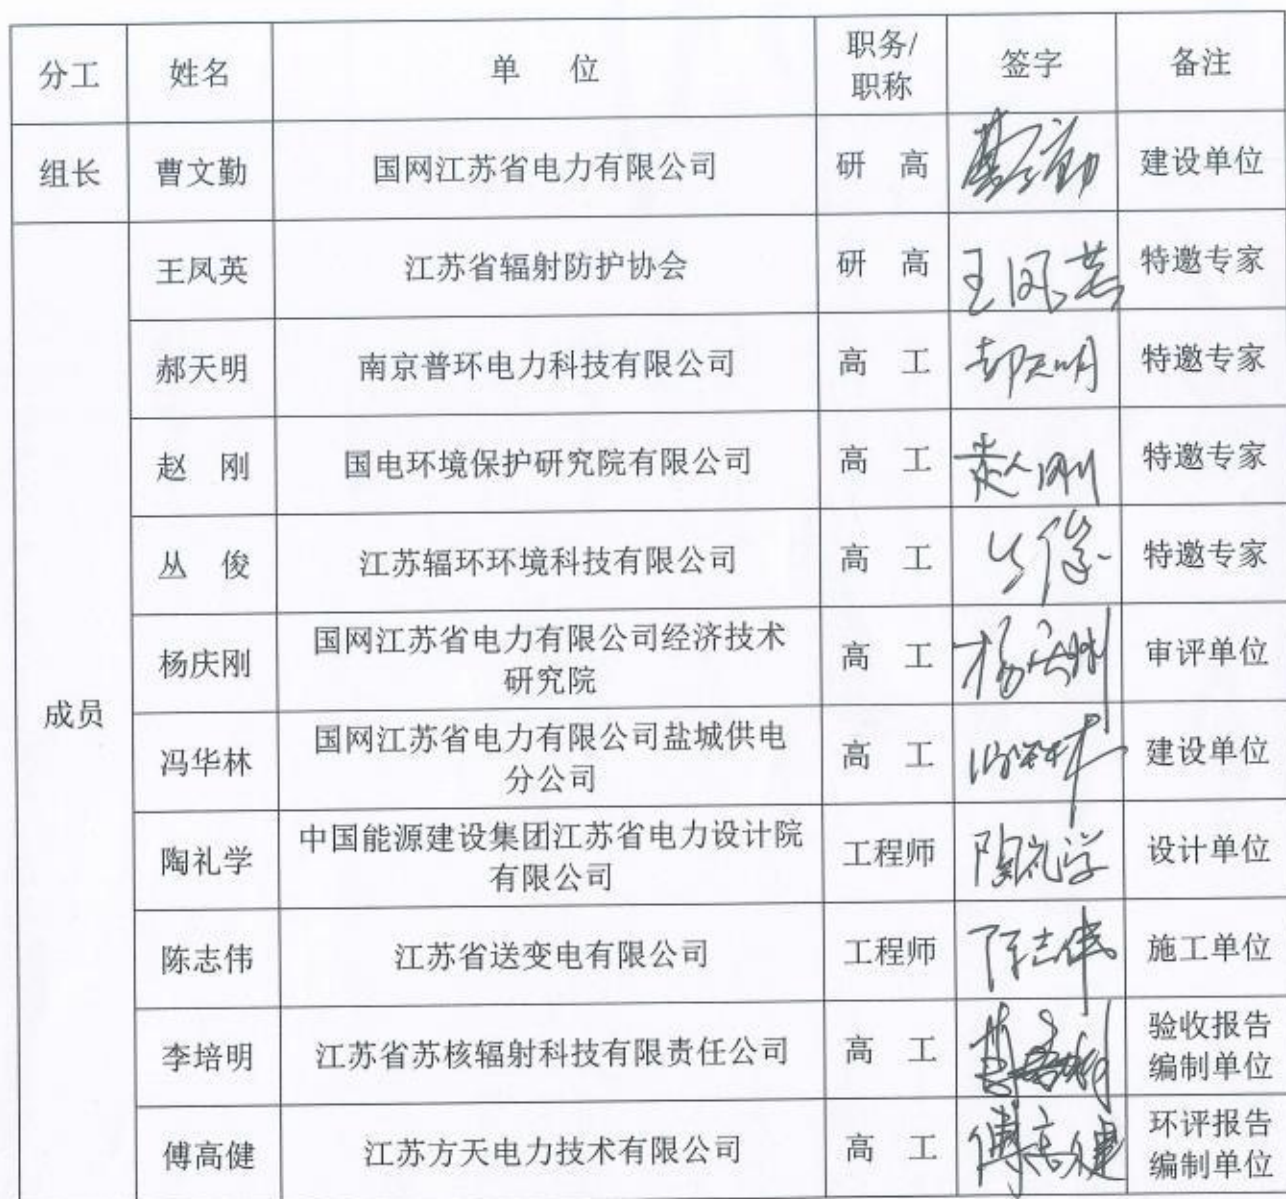 分工 姓名 单 位 职务/职称 签字 备注
组长 曹文勤 国网江苏省电力有限公司 研 高 建设单位
成员
王凤英 江苏省辐射防护协会 研 高 王凤英 特邀专家
郝天明 南京普环电力科技有限公司 高 工 郝天明 特邀专家
赵 刚 国电环境保护研究院有限公司 高 工 赵刚 特邀专家
丛 俊 江苏辐环环境科技有限公司 高 工 丛俊 特邀专家
杨庆刚 国网江苏省电力有限公司经济技术研究院 高 工 杨庆刚 审评单位
冯华林 国网江苏省电力有限公司盐城供电分公司 高 工 冯华林 建设单位
陶礼学 中国能源建设集团江苏省电力设计院有限公司 工程师 陶礼学 设计单位
陈志伟 江苏省送变电有限公司 工程师 陈志伟 施工单位
李培明 江苏省苏核辐射科技有限责任公司 高 工 验收报告编制单位
傅高健 江苏方天电力技术有限公司 高 工 傅高健 环评报告编制单位